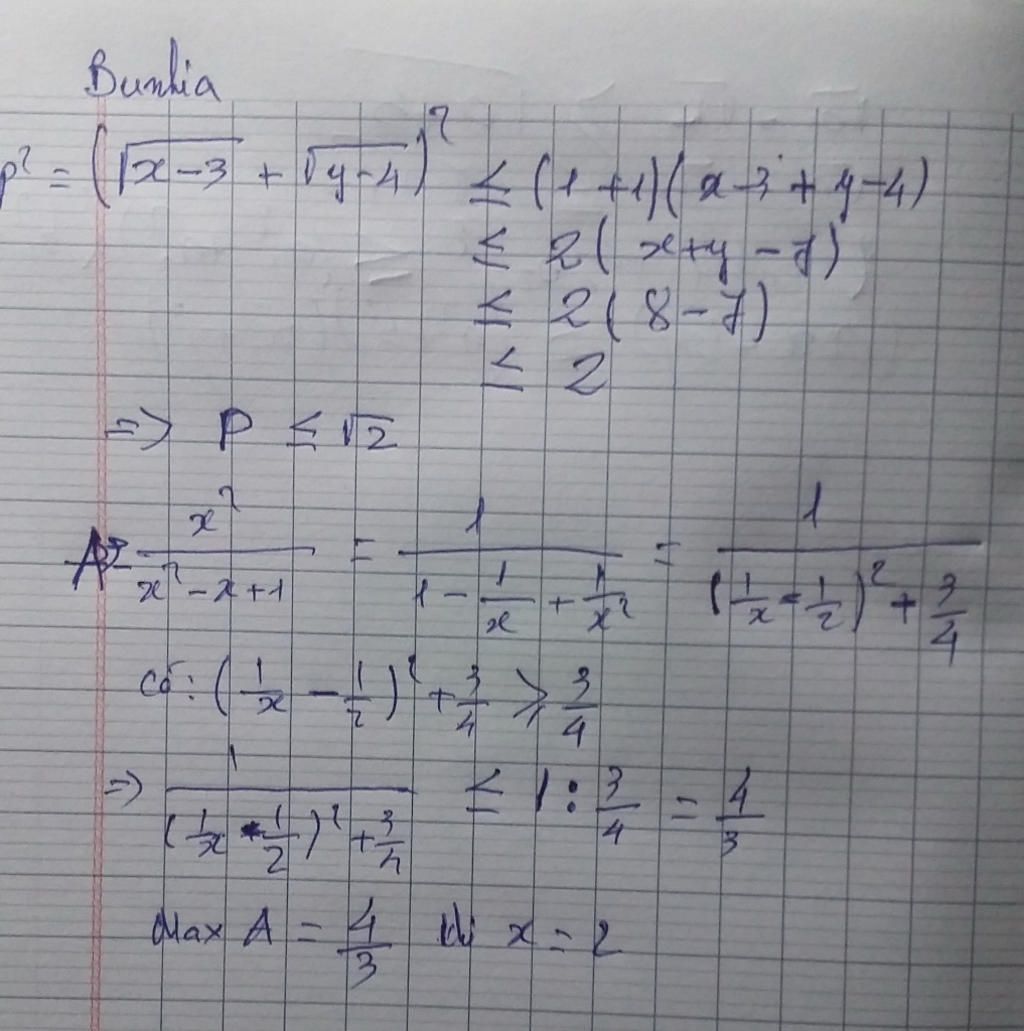 Bunhia
P² = (√(x-3) + √(y-4))² ≤ (1+1)(x-3+y-4)
≤ 2(x+y-7)
≤ 2(8-7)
≤ 2
=> P ≤ √2
A = x²/(x²-x+1) = 1/(1 - 1/x + 1/x²) = 1/((1/x - 1/2)² + 3/4)
có: (1/x - 1/2)² + 3/4 ≥ 3/4
=> 1/((1/x - 1/2)² + 3/4) ≤ 1 : 3/4 = 4/3
Max A = 4/3 khi x = 2